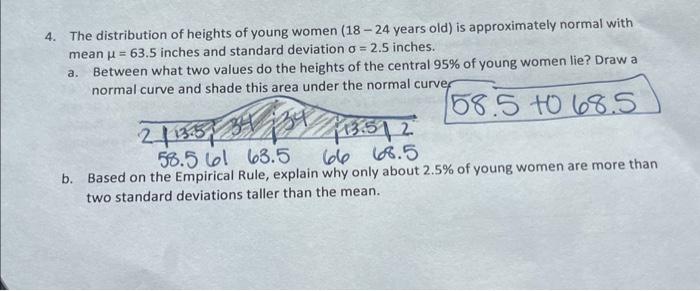 4. The distribution of heights of young women (18 – 24 years old) is approximately normal with
mean μ = 63.5 inches and standard deviation σ = 2.5 inches.
a. Between what two values do the heights of the central 95% of young women lie? Draw a
normal curve and shade this area under the normal curve.
58.5 to 68.5
2 13.5 34 34 13.5 2
58.5 61 63.5 66 68.5
b. Based on the Empirical Rule, explain why only about 2.5% of young women are more than
two standard deviations taller than the mean.